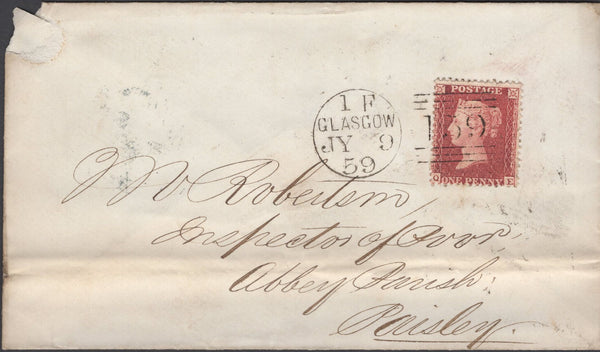 1 F
GLASGOW
JY 9
59
POSTAGE
159
ONE PENNY
Q E
Mr Robertson,
Inspector of Poor,
Abbey Parish,
Paisley.